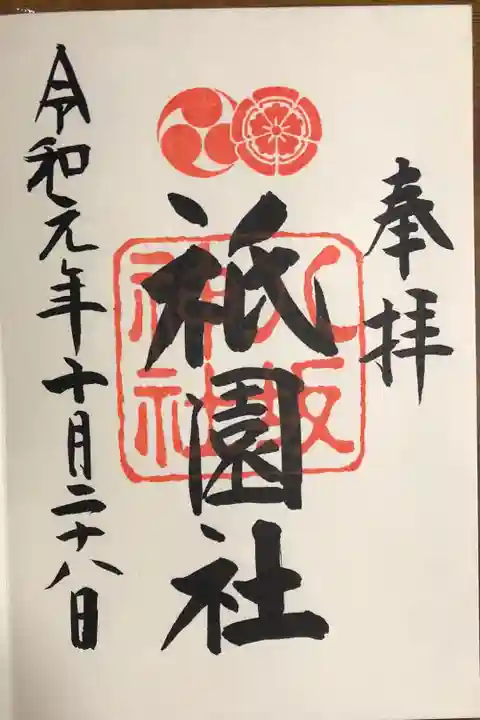 奉拝
八坂
神社
祇園社
令和元年十月二十八日